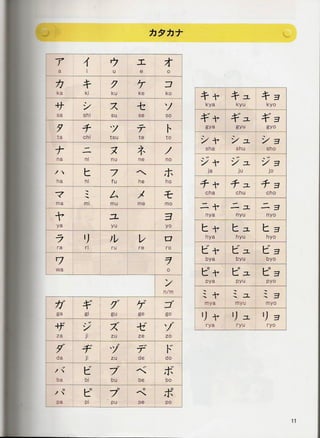 カタカナ
ア イ ウ エ オ
a i u e o
カ キ ク ケ コ
ka ki ku ke ko
サ シ ス セ ソ
sa shi su se so
タ チ ツ テ ト
ta chi tsu te to
ナ ニ ヌ ネ ノ
na ni nu ne no
ハ ヒ フ ヘ ホ
ha hi fu he ho
マ ミ ム メ モ
ma mi mu me mo
ヤ ユ ヨ
ya yu yo
ラ リ ル レ ロ
ra ri ru re ro
ワ ヲ
wa o
ン
n/m
ガ ギ グ ゲ ゴ
ga gi gu ge go
ザ ジ ズ ゼ ゾ
za ji zu ze zo
ダ ヂ ヅ デ ド
da ji zu de do
バ ビ ブ ベ ボ
ba bi bu be bo
パ ピ プ ペ ポ
pa pi pu pe po
キャ キュ キョ
kya kyu kyo
ギャ ギュ ギョ
gya gyu gyo
シャ シュ ショ
sha shu sho
ジャ ジュ ジョ
ja ju jo
チャ チュ チョ
cha chu cho
ニャ ニュ ニョ
nya nyu nyo
ヒャ ヒュ ヒョ
hya hyu hyo
ビャ ビュ ビョ
bya byu byo
ピャ ピュ ピョ
pya pyu pyo
ミャ ミュ ミョ
mya myu myo
リャ リュ リョ
rya ryu ryo
11